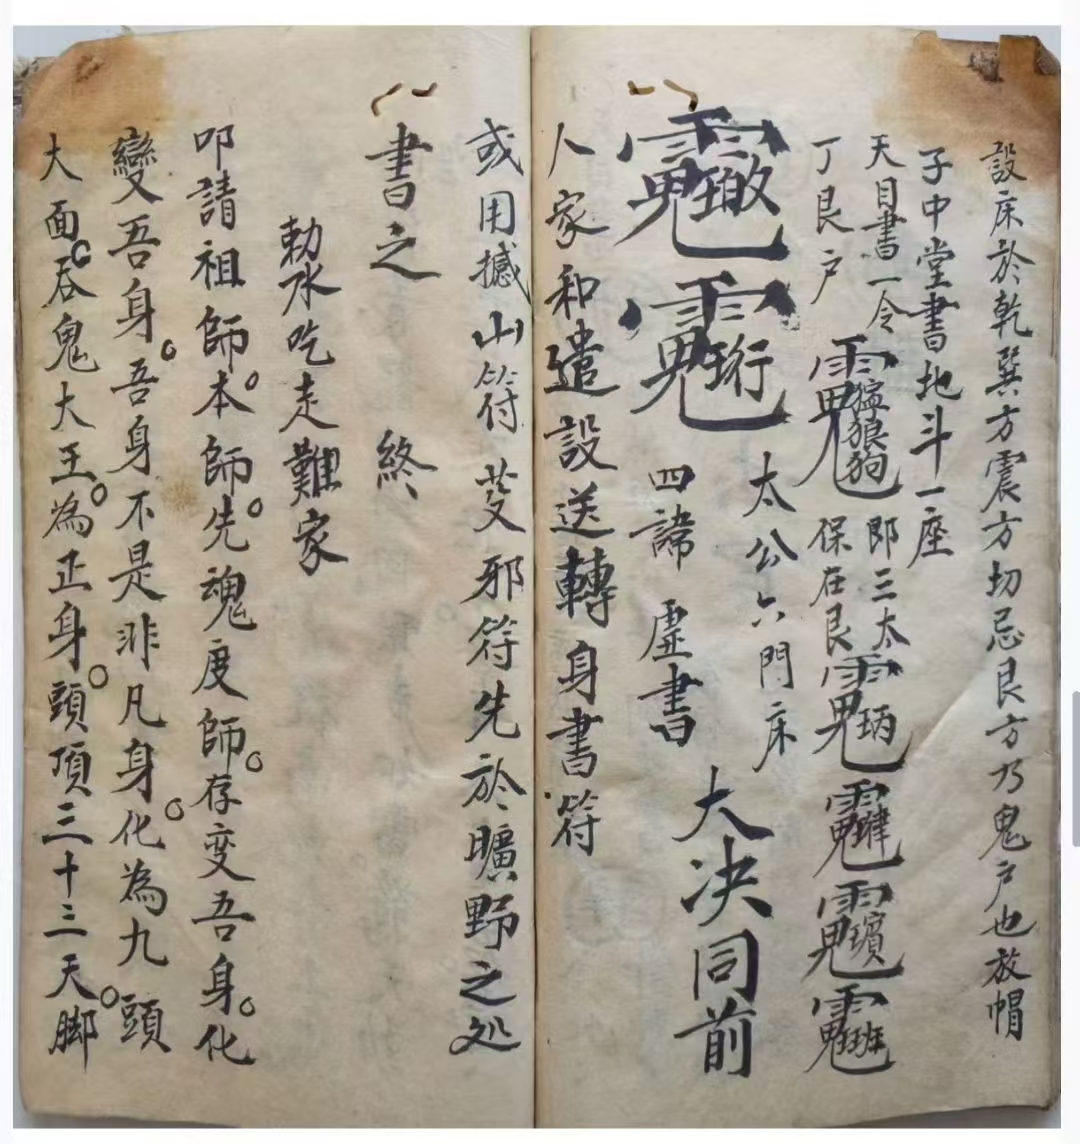 設床於乾巽方震方切忌艮方乃鬼户也放帽
子中堂書地斗一座
天目書一令
即三太
丁艮户
保在艮
太公六門床
大决同前
四諦 虚書
人家和遣設送轉身書符
或用撼山符 邪符先於曠野之处
書之 終
勅水吃走難家
叩請祖師。本師先。魂度師。存变吾身。化
變吾身。吾身不是非凡身。化為九頭
大面。吞鬼大王。為正身。頭頂三十三天。脚